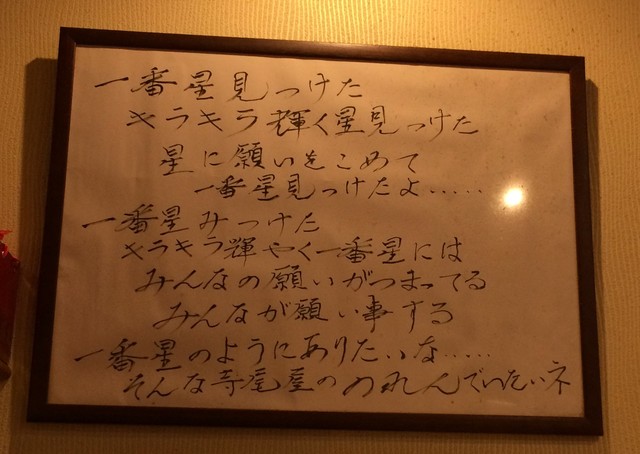 一番星見つけた
キラキラ輝く星見つけた
星に願いをこめて
一番星見つけたよ……
一番星みつけた
キラキラ輝やく一番星には
みんなの願いがつまってる
みんなが願い事する
一番星のようにありたいな……
そんな寺尾屋ののれんでいたいネ